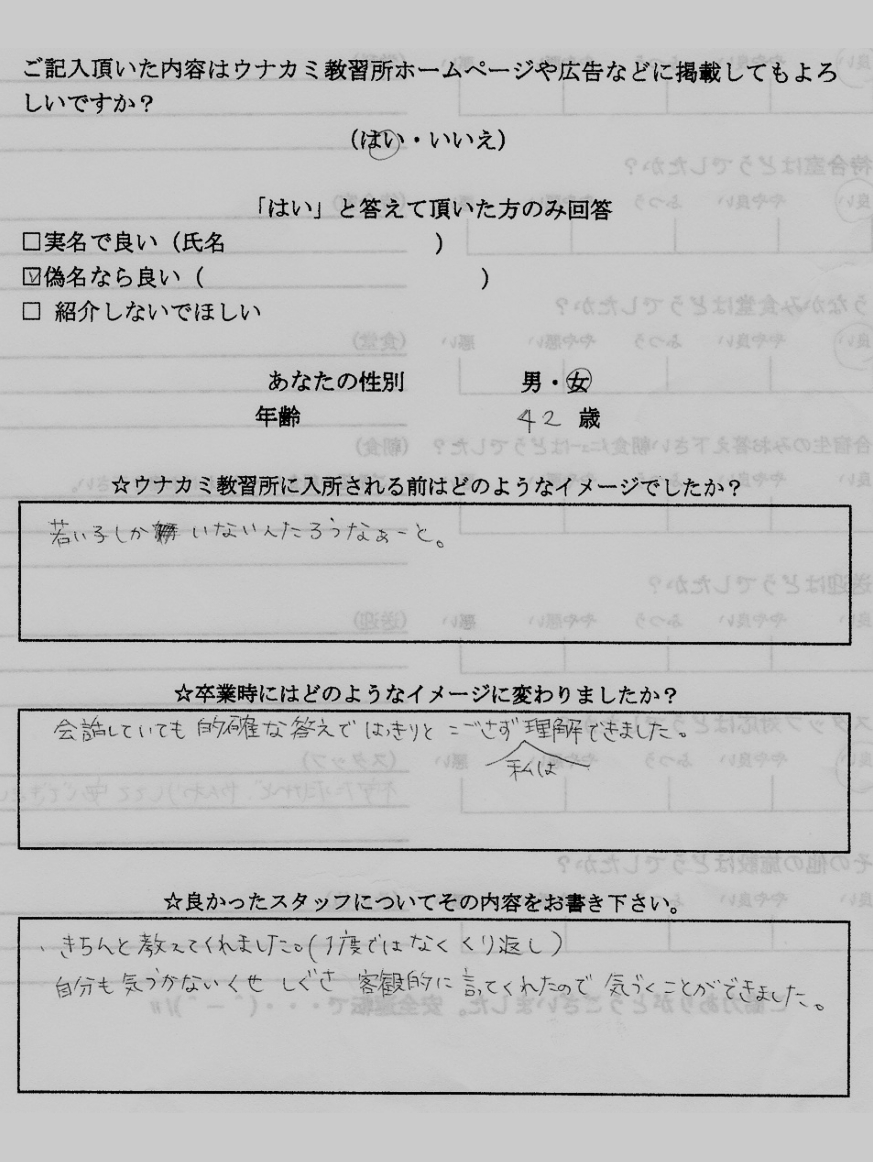 ご記入頂いた内容はウナカミ教習所ホームページや広告などに掲載してもよろ
しいですか？
（はい・いいえ）
「はい」と答えて頂いた方のみ回答
□実名で良い（氏名　　　　　　　　　）
☑偽名なら良い（　　　　　　　　　　　　）
□ 紹介しないでほしい
あなたの性別　　　　　男・女
年齢　　　　　　　　　42 歳
☆ウナカミ教習所に入所される前はどのようなイメージでしたか？
若い子しか いないんだろうなぁーと。
☆卒業時にはどのようなイメージに変わりましたか？
会話していても 的確な答えで はっきりと にごさず 理解できました。
私は
☆良かったスタッフについてその内容をお書き下さい。
、きちんと教えてくれました。(1度ではなくくり返し)
自分も気づかないくせ しぐさ 客観的に言ってくれたので 気づくことができました。